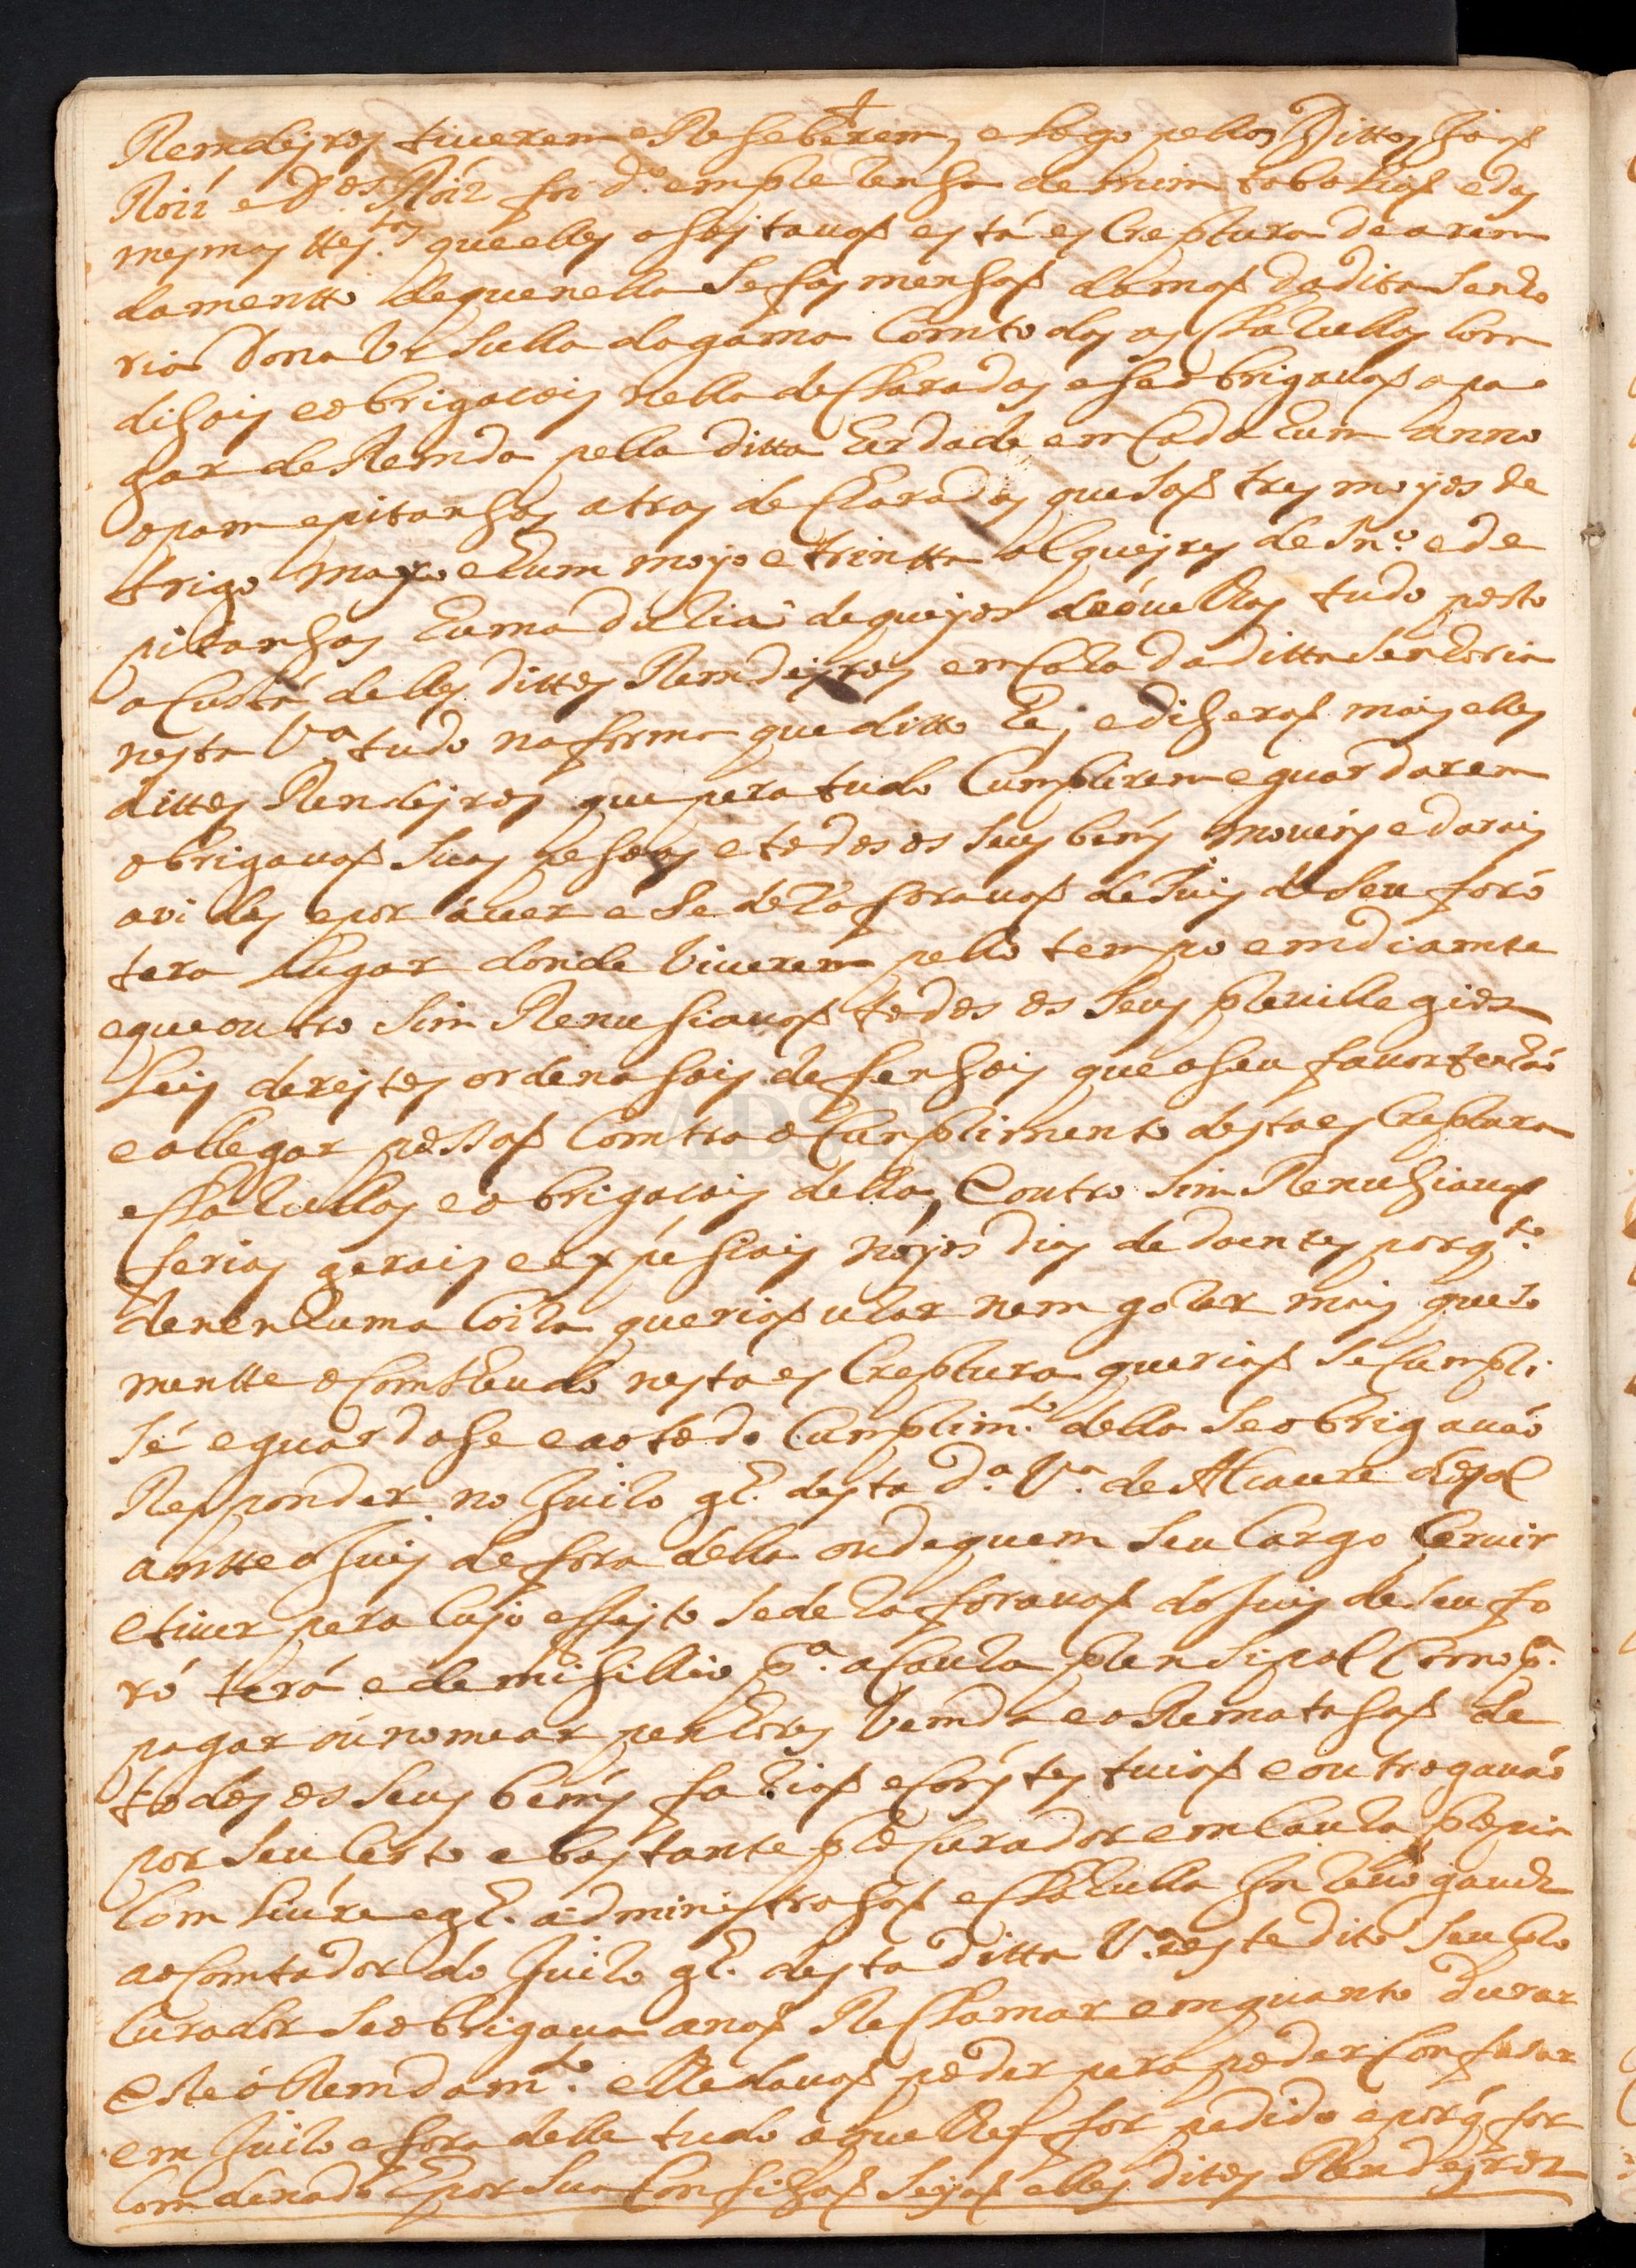 Remdejros tiverem e Reseberem, e logo pellos Dittos João
Roiz e D.os Roiz foi d.o em prezensa de mim tabaliaõ e das
mesmas ttes.tas que elles aseitavaõ esta escreptura de arem
damentto de que nella se fas mensaõ da maõ da dita senho
ria Dona Ursulla da gama Com todas as Clazullas com
disois e obrigacois nella declaradas e se obrigavaõ a pa
gar de Remda pella ditta Erdade em Cada hum anno
o pam e pitansas atras declaradas que saõ tres moyos de
trigo mayo e hum moyo e trintta alqueyres de sn.o e de
pitansas huma duzia de queyjos de ovelhas tudo posto
a Custa delles dittos Remdejros em Caza da ditta senhoria
nesta V.a tudo na forma que ditto he, e diseraõ mais elles
dittos Rendejros que pera tudo Cumprirem e guardarem
obrigavaõ suas pesoas e todos os seus bems moveis e de rais
avidos e por aver e se dezaforavaõ de Juis de seu foro
tera lugar donde viverem pello tempo em diamte
e que outro sim Renusiavaõ todos os seus previllegios
leis derejtos ordenasois defensois que a seu favor fasão
e allegar possaõ Comtra o Cumprimento desta escreptura
e Clazullas e obrigacois della, e outro sim Renusiavaõ
ferias gerais e expesiais nojos dias de doentes porq.to
de nenhuma Coiza queriaõ uzar nem gozar mais que so
mentte o Comtheudo nesta escreptura queriaõ se Cumpri
sé e guardase e ao todo Cumprim.to della se obrigavão
Responder no Juizo g.l desta d.a V.a de Alcacere do sal
antte o Juis de fora della ou de quem seu Cargo servir
e tiver pera Cujo effejto se dezaforavaõ do Juis de seu fo
ro terá e demisillio p.a a Cauza prensipal Como p.a
pagar ou nomear penhores vemda e aRematasaõ de
todos os seus bems faziaõ e Constestuiaõ e outrogavão
por seu Certo e bastante procurador em Cauza propria
Com livre e g.l administrasaõ e Clazulla In Revogavel
ao Comtador do Juizo g.l desta ditta V.a este dito seu pro
Curador se obrigava a naõ Reclamar em quanto durar
este aRemdam.to e lhe davaõ poder pera poder Confesar
em Juizo e fora delle tudo o que lhes for pedido e por q̃ for
Comdenado E por sua Comfisaõ sejaõ elles ditos Rendejros